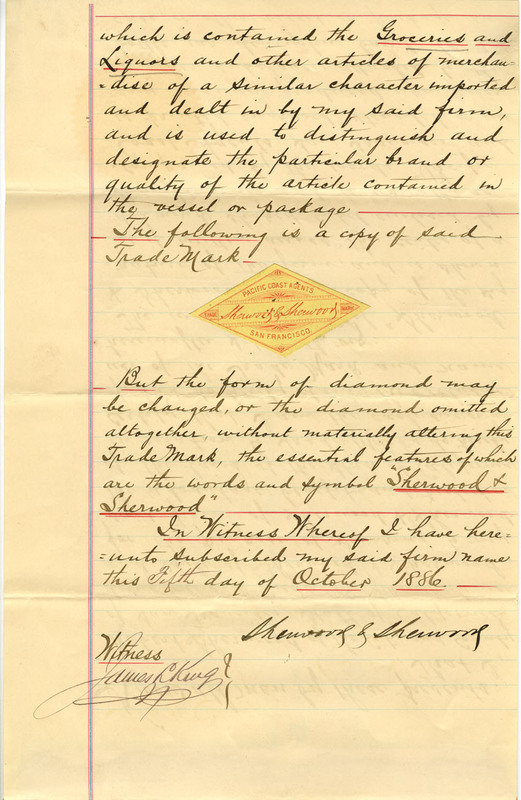 which is contained the Groceries and
Liquors and other articles of merchan=
=dise of a similar character imported
and dealt in by my said firm,
and is used to distinguish and
designate the particular brand or
quality of the article contained in
the vessel or package
The following is a copy of said
Trade Mark
PACIFIC COAST AGENTS
TRADE Sherwood & Sherwood MARK
SAN FRANCISCO.
But the form of diamond may
be changed, or the diamond omitted
altogether, without materially altering this
Trade Mark, the essential features of which
are the words and symbol "Sherwood &
Sherwood"
In Witness Whereof I have here=
=unto subscribed my said firm name
this Fifth day of October 1886.
Sherwood & Sherwood
Witness
James L. King